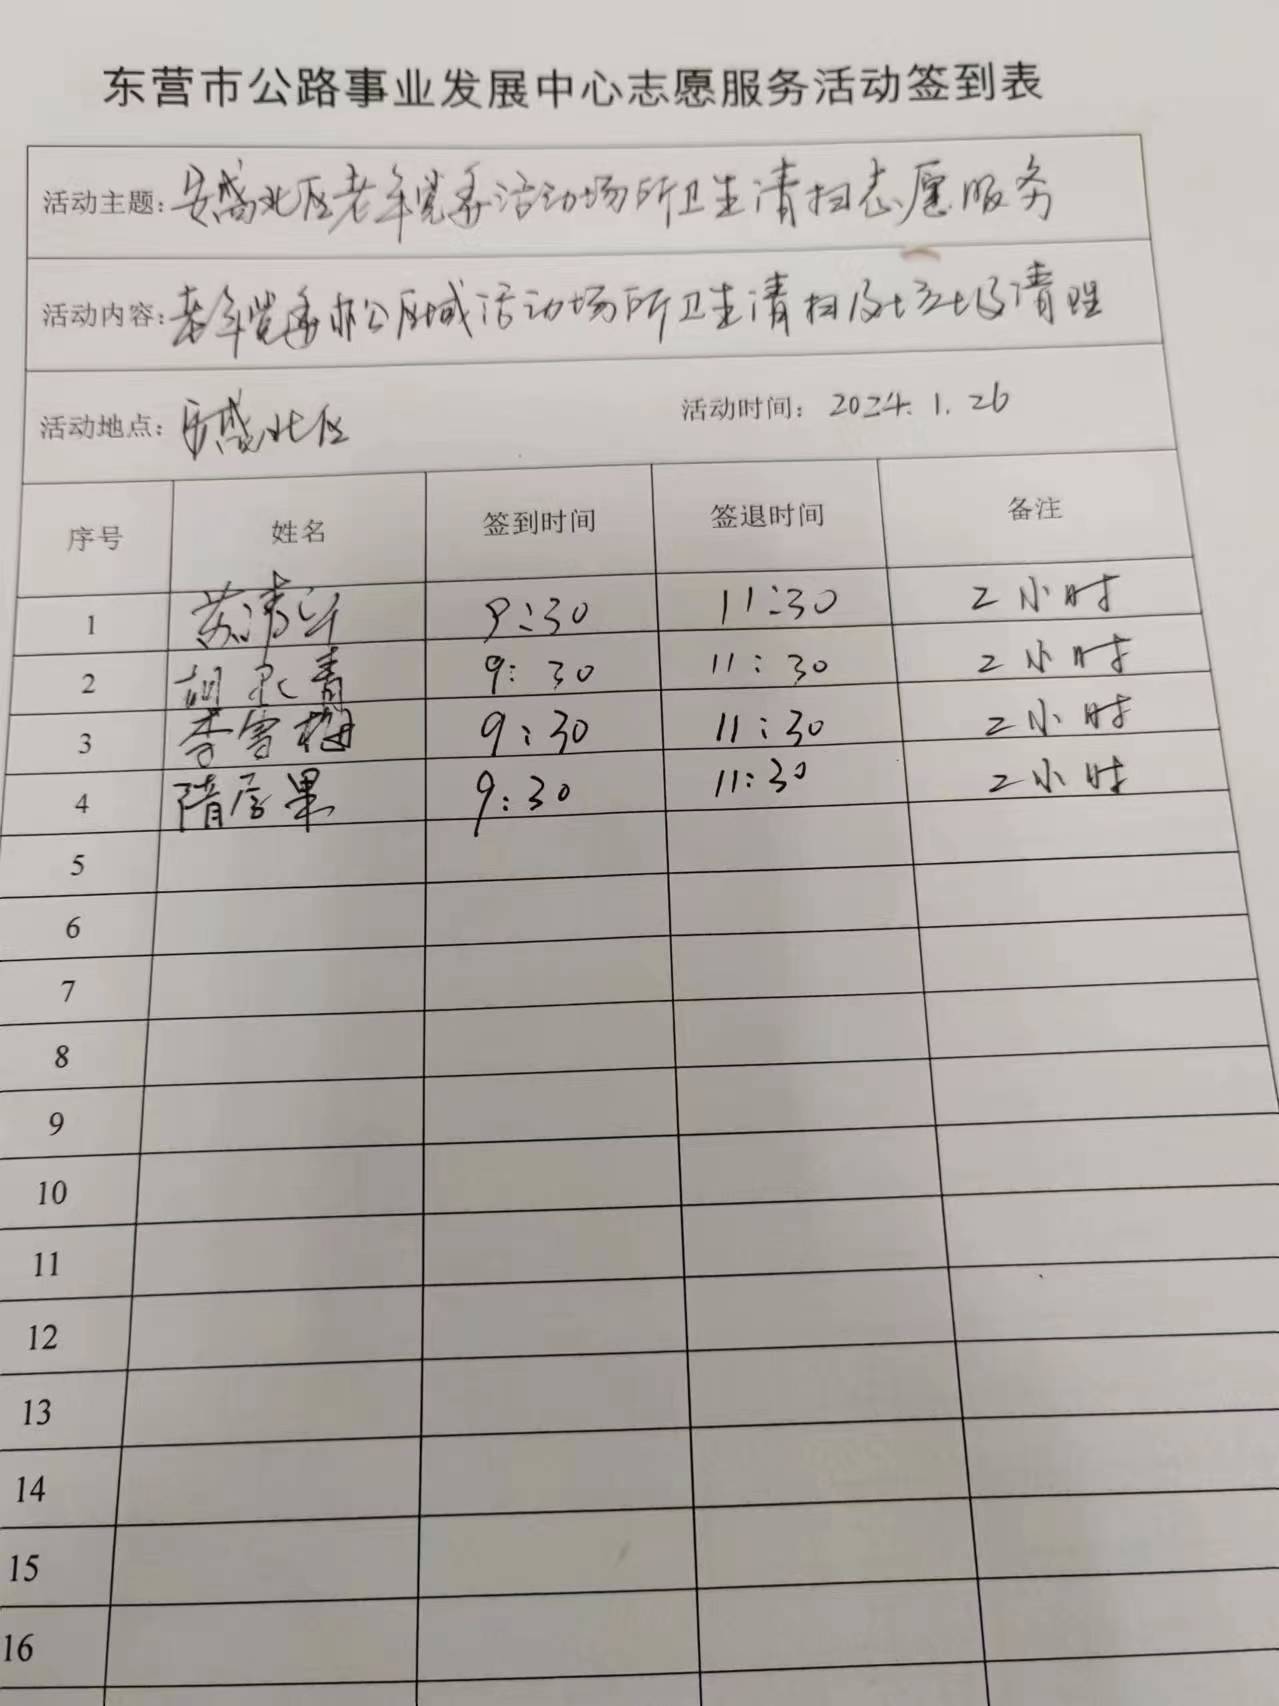 东营市公路事业发展中心志愿服务活动签到表
活动主题：安盛北区老年党委活动场所卫生清扫志愿服务
活动内容：老年党委办公区域活动场所卫生清扫及垃圾清理
活动地点：安盛北区 活动时间：2024.1.26
序号 姓名 签到时间 签退时间 备注
1 苏 9:30 11:30 2小时
2 胡 青 9:30 11:30 2小时
3 李雪梅 9:30 11:30 2小时
4 隋 果 9:30 11:30 2小时
5
6
7
8
9
10
11
12
13
14
15
16